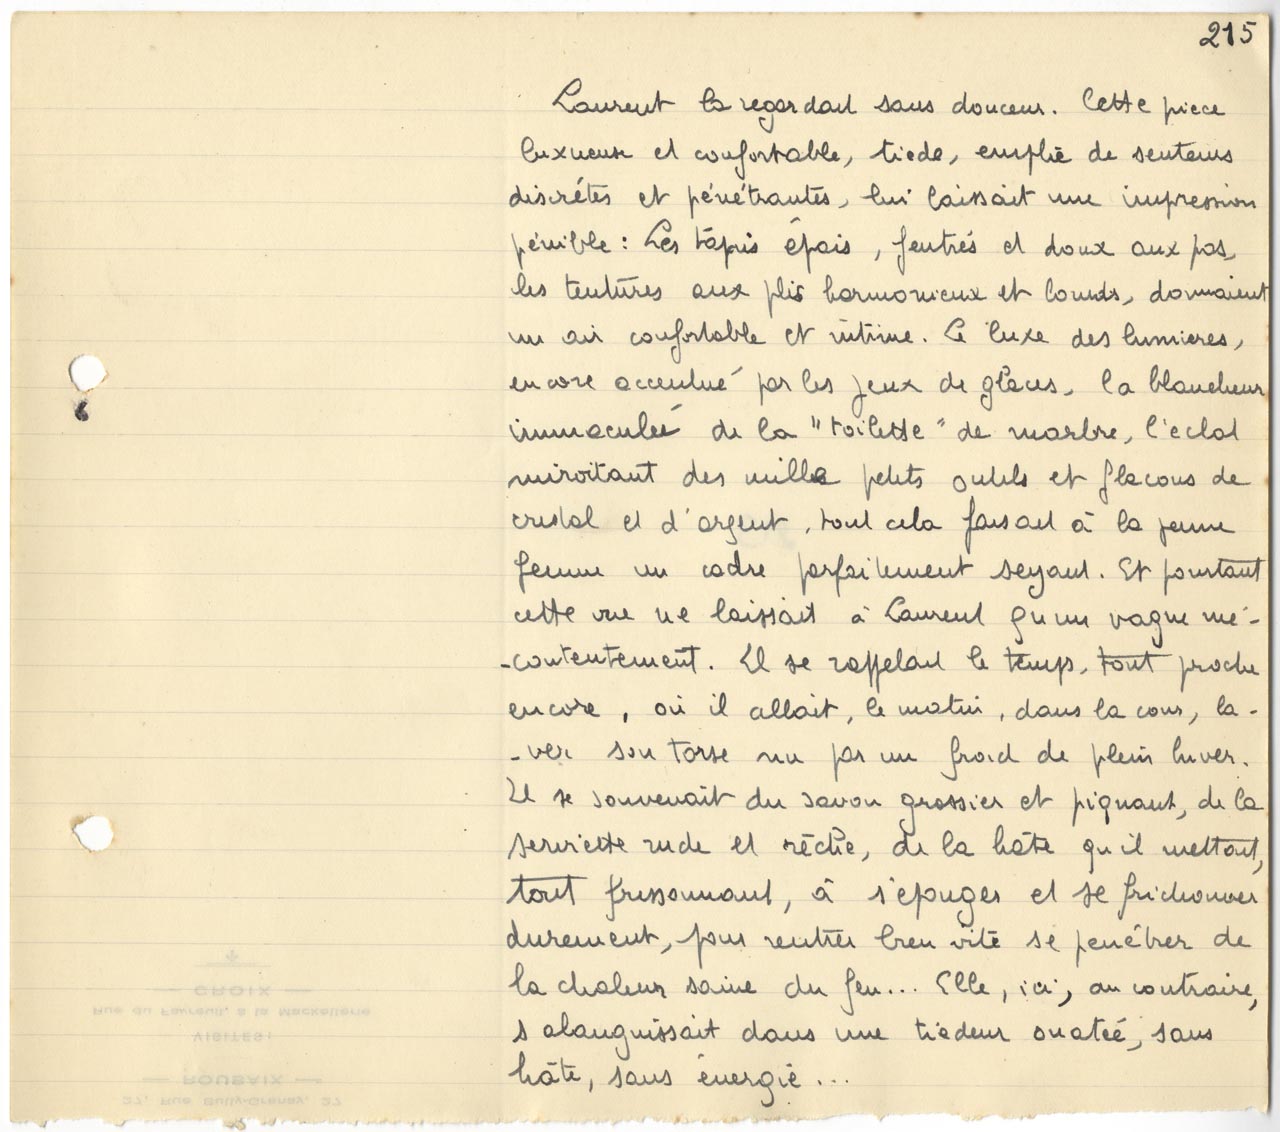 215
Laurent la regardait sans douceur. Cette pièce
luxueuse et confortable, tiède, emplie de senteurs
discrètes et pénétrantes, lui laissait une impression
pénible : Les tapis épais, feutrés et doux aux pas,
les tentures aux plis harmonieux et lourds, donnaient
un air confortable et intime. Le luxe des lumières,
encore accentué par les jeux de glaces, la blancheur
immaculée de la "toilette" de marbre, l'éclat
miroitant des mille petits outils et flacons de
cristal et d'argent, tout cela faisait à la jeune
femme un cadre parfaitement seyant. Et pourtant
cette vue ne laissait à Laurent qu'un vague mé-
-contentement. Il se rappelait le temps, tout proche
encore, où il allait, le matin, dans la cour, la-
-ver son torse nu par un froid de plein hiver.
Il se souvenait du savon grossier et piquant, de la
serviette rude et rêche, de la hâte qu'il mettait,
tout frissonnant, à s'éponger et se frictionner
durement, pour rentrer bien vite se pénétrer de
la chaleur saine du feu... Elle, ici, au contraire,
s'alanguissait dans une tiédeur ouatée, sans
hâte, sans énergie...
CROIX
Rue du Favreuil, à la Mackellerie
VISITES:
ROUBAIX
27, Rue Bully-Grenay, 27